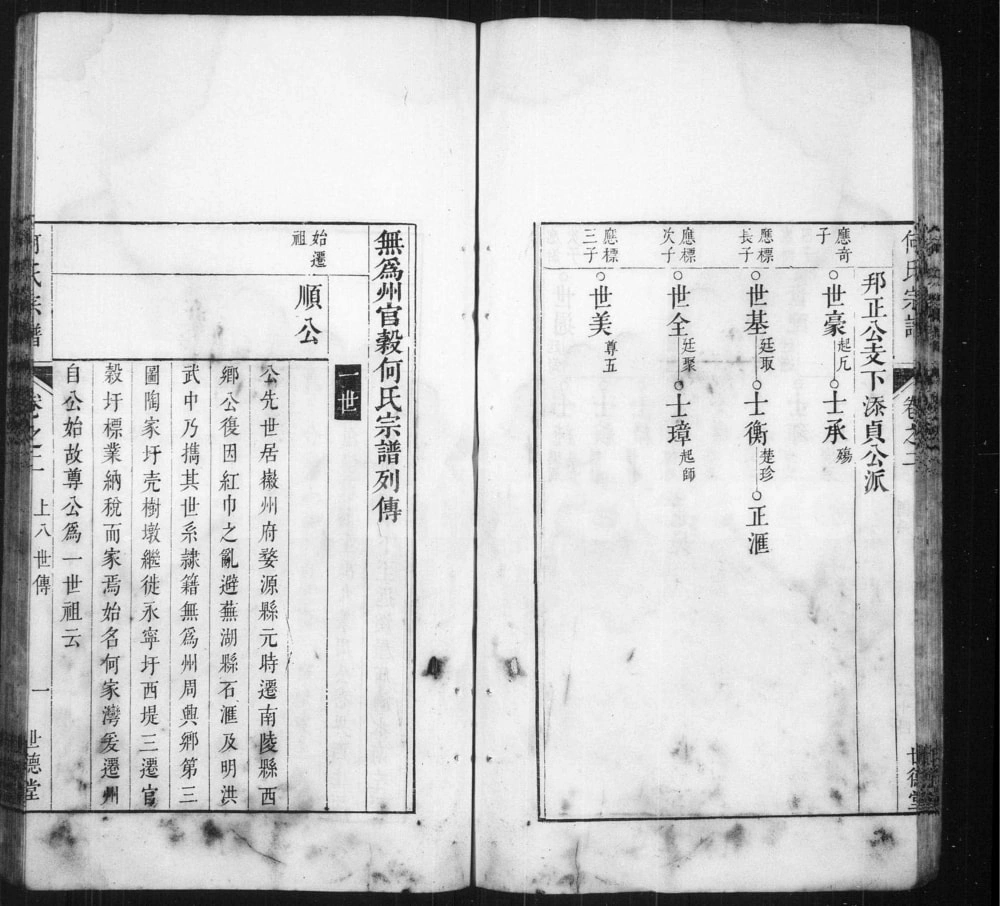 何氏宗譜
卷之二
世德堂
邦正公支下添貞公派
應奇子
世豪 起凡 士承 殤
應標長子
世基 廷取 士衡 楚珍 正滙
應標次子
世全 廷聚 士璋 起師
應標三子
世美 尊五
無爲州官穀何氏宗譜列傳
一世
始遷祖
順公
公先世居徽州府婺源縣元時遷南陵縣西
鄉公復因紅巾之亂避蕪湖縣石滙及明洪
武中乃攜其世系隷籍無爲州周興鄉第三
圖陶家圩壳樹墩繼徙永寧圩西堤三遷官
穀圩標業納稅而家焉始名何家灣爰遷州
自公始故尊公爲一世祖云
何氏宗譜
卷之二
上八世傳
一
世德堂